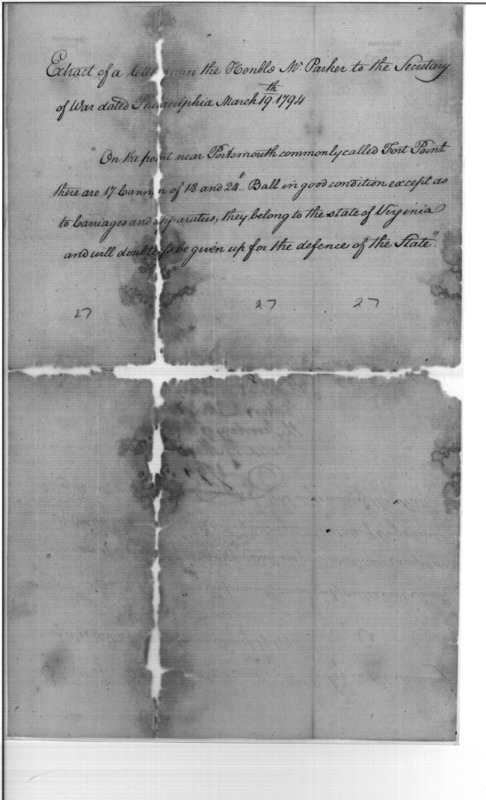 Extract of a letter from the Honble Mr. Parker to the Secretary
of War dated Philadelphia March 19th 1794
"On the point near Portsmouth commonly called Fort Point
there are 17 Cannon of 18 and 24lb Ball in good condition except as
to Carriages and apparatus, they belong to the state of Virginia
and will doubtless be given up for the defence of the State".
27 27 27